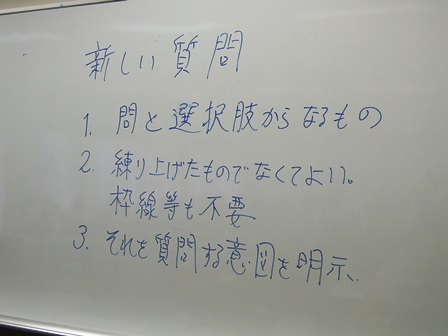 新しい質問
1. 問と選択肢からなるもの
2. 練り上げたものでなくてよい。
枠線等も不要
3. それを質問する意図を明示、